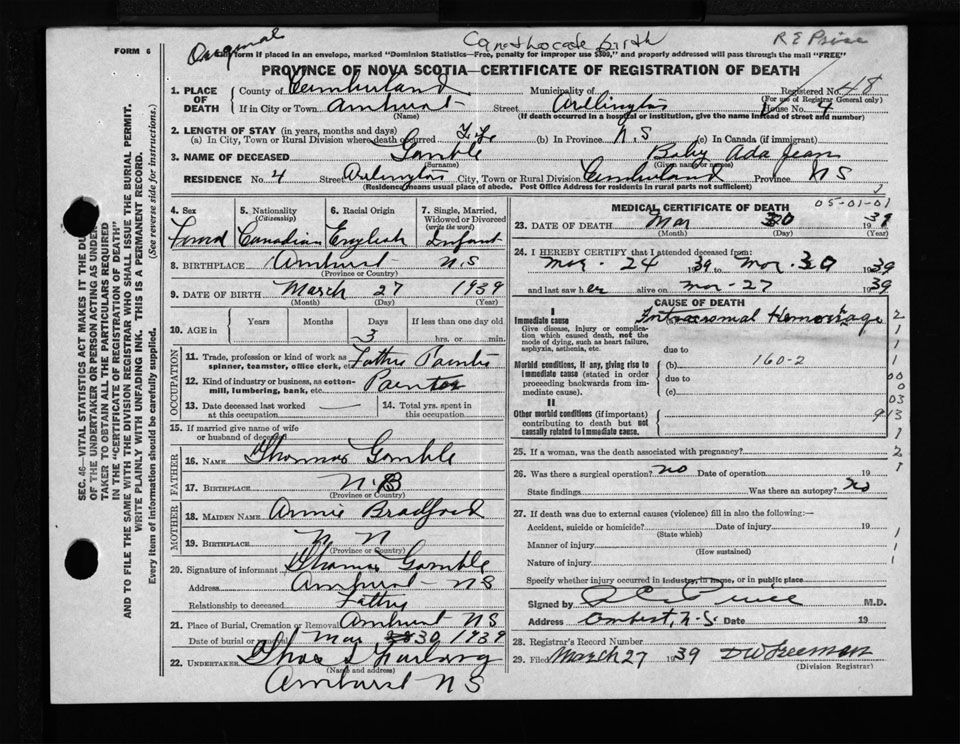 FORM 6
Original
birth
R E Price
form if placed in an envelope, marked "Dominion Statistics—Free, penalty for improper use $300," and properly addressed will pass through the mail "FREE"
PROVINCE OF NOVA SCOTIA—CERTIFICATE OF REGISTRATION OF DEATH
1. PLACE OF DEATH
County of Cumberland Municipality of Registered No. 48
(For use of Registrar General only)
If in City or Town Amherst Street Arlington House No. 4
(Name) (If death occurred in a hospital or institution, give the name instead of street and number)
2. LENGTH OF STAY (in years, months and days)
(a) In City, Town or Rural Division where death occurred Life (b) In Province N.S (c) In Canada (if immigrant)
3. NAME OF DECEASED Gamble Baby Ada Jean
(Surname) (Given name or names)
RESIDENCE No. 4 Street Arlington City, Town or Rural Division Cumberland Province NS
(Residence means usual place of abode. Post Office Address for residents in rural parts not sufficient)
SEC. 46—VITAL STATISTICS ACT MAKES IT THE DU
OF THE UNDERTAKER OR PERSON ACTING AS UNDER-
TAKER TO OBTAIN ALL THE PARTICULARS REQUIRED
IN THE "CERTIFICATE OF REGISTRATION OF DEATH"
AND TO FILE THE SAME WITH THE DIVISION REGISTRAR WHO SHALL ISSUE THE BURIAL PERMIT.
WRITE PLAINLY WITH UNFADING INK. THIS IS A PERMANENT RECORD.
Every item of information should be carefully supplied. (See reverse side for instructions.)
4. Sex
5. Nationality (Citizenship) Canadian
6. Racial Origin English
7. Single, Married, Widowed or Divorced (write the word) Infant
8. BIRTHPLACE Amherst N.S
(Province or Country)
9. DATE OF BIRTH March 27 1939
(Month) (Day) (Year)
10. AGE in Years Months Days 3 If less than one day old hrs. or min.
OCCUPATION
11. Trade, profession or kind of work as spinner, teamster, office clerk, etc. Father Painter
12. Kind of industry or business, as cotton-mill, lumbering, bank, etc. Painter
13. Date deceased last worked at this occupation
14. Total yrs. spent in this occupation
15. If married give name of wife or husband of deceased
FATHER
16. NAME Thomas Gamble
17. BIRTHPLACE N.B
(Province or Country)
MOTHER
18. MAIDEN NAME Annie Bradford
19. BIRTHPLACE
(Province or Country)
20. Signature of informant Thomas Gamble
Address Amherst NS
Relationship to deceased Father
21. Place of Burial, Cremation or Removal Amherst NS
Date of burial or removal Mar 30 1939
22. UNDERTAKER
(Name and address)
Amherst NS
05-01-01
MEDICAL CERTIFICATE OF DEATH
23. DATE OF DEATH Mar 30 1939
(Month) (Day) (Year)
24. I HEREBY CERTIFY that I attended deceased from:
Mar. 24 1939 to Mar. 30 1939
and last saw her alive on Mar-27 1939
CAUSE OF DEATH
I
Immediate cause Intracranial Hemorrhage
Give disease, injury or complication which caused death, not the mode of dying, such as heart failure, asphyxia, asthenia, etc.
due to
Morbid conditions, if any, giving rise to immediate cause (stated in order proceeding backwards from immediate cause). (b) 160-2
due to
(c)
II
Other morbid conditions (if important) contributing to death but not causally related to immediate cause.
25. If a woman, was the death associated with pregnancy?
26. Was there a surgical operation? no Date of operation 19
State findings Was there an autopsy? no
27. If death was due to external causes (violence) fill in also the following:—
Accident, suicide or homicide? Date of injury 19
(State which)
Manner of injury
(How sustained)
Nature of injury
Specify whether injury occurred in industry, in home, or in public place
Signed by M.D.
Address Amherst, N.S. Date 19
28. Registrar's Record Number
29. Filed March 27 1939 DW Freeman
(Division Registrar)